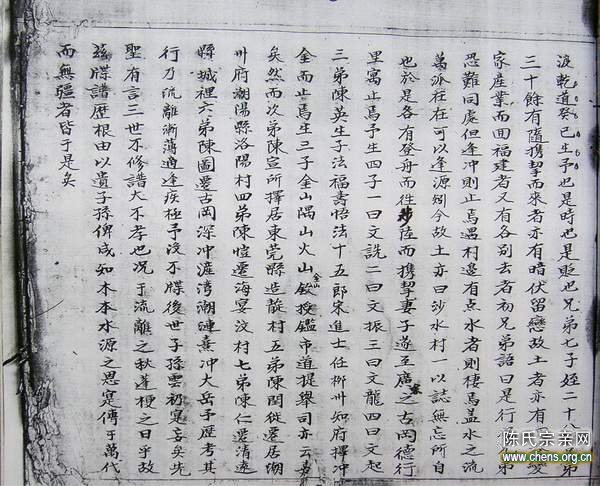 淚乾道癸巳生予也是時也是貶也兄弟七子姪二十
三十餘有隨携挈而來者亦有暗伏留戀故土者亦有
家産業而回福建者又有各别去者初兄弟語曰是行
恐難同處但逢冲則止焉遇村邊有点水者則棲焉盖水之流
萬派在在可以逢源矧今故土亦曰沙水村一以誌無忘所自
也於是各有登舟而徃陸而携挈妻子遂至廣之古岡德行
里寓止焉予生四子一曰文詵二曰文振三曰文龍四曰文起
三弟陳英生子法福壽悟法十五郎宋進士任柳州知府擇冲
金而止焉生三子金山隅山火山欽授鹽市道提舉司亦云
矣然而次弟陳宣所擇居東莞縣造
村五弟陳閏徙遷居潮
州府潮陽縣洛陽村四弟陳愷遷海宴汶村七弟陳仁遷清遠
縣城裡六弟陳圖遷古岡深冲滘湾潮連熹冲大岳予歷考其
行乃流離渐蕩適逢疾極予没不牒後世子孫雲礽寔吝矣先
聖有言三世不修譜大不孝也况于流離之秋蓬梗之日乎故
兹牒譜歷根由以遺子孫俾咸如木本水源之思寔傳于萬代
而無疆者皆于是矣
陈氏宗亲网
www.chens.org.cn